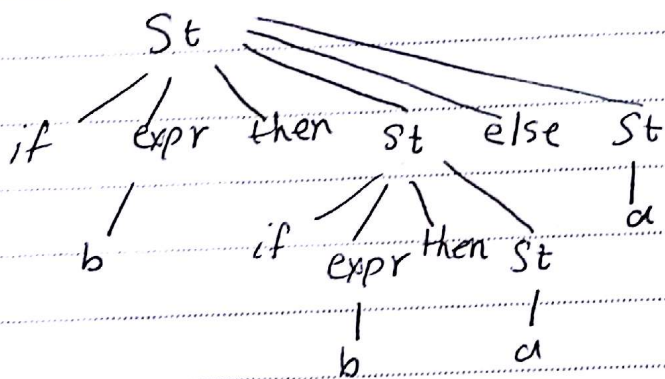 St
if expr then St else St
b if expr then St a
b a